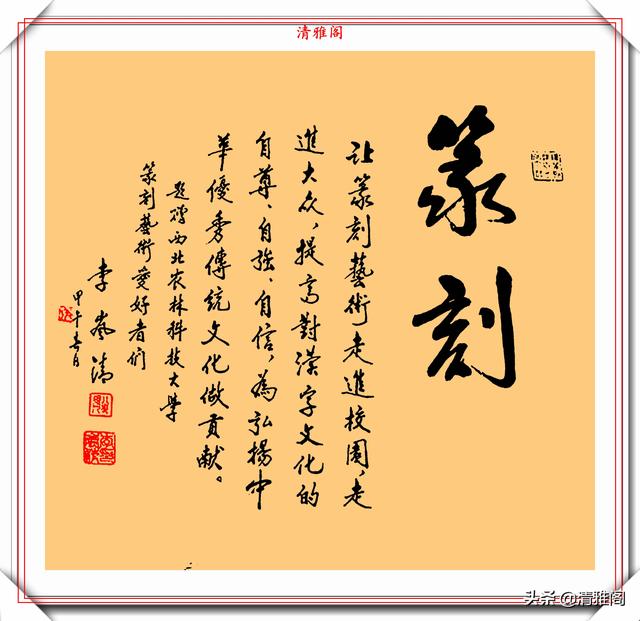 清雅阁
篆刻
让篆刻藝術走進校園，走
進大众，提高對漢字文化的
自尊、自強、自信，為弘揚中
華優秀傳統文化做貢献。
题赠西北农林科技大學
篆刻藝術愛好者們
李嵐清
甲午月
头条 @清雅阁